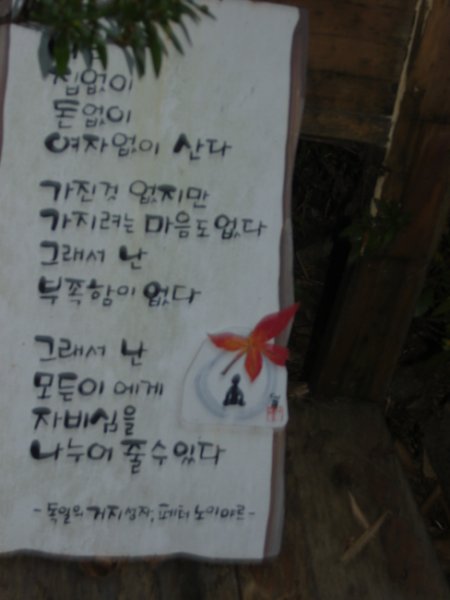 집없이
돈없이
여자없이 산다
가진것 없지만
가지려는 마음도없다
그래서 난
부족함이 없다
그래서 난
모든이에게
자비심을
나누어 줄수있다
-독일의 거지성자, 페터 노이야르-